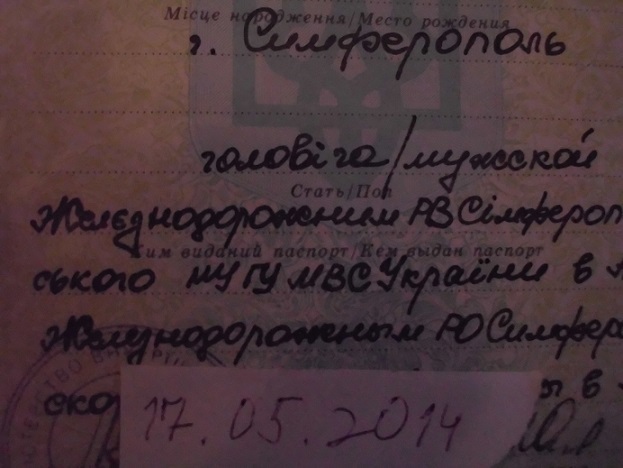 Місце народження/Место рождения
г. Симферополь
чоловіча/мужской
Стать/Пол
Желєзнодорожним РВ Сімфероп
Ким виданий паспорт/Кем выдан паспорт
ського МУ ГУ МВС України в
Железнодорожным РО Симферо
ско в
17.05.2014